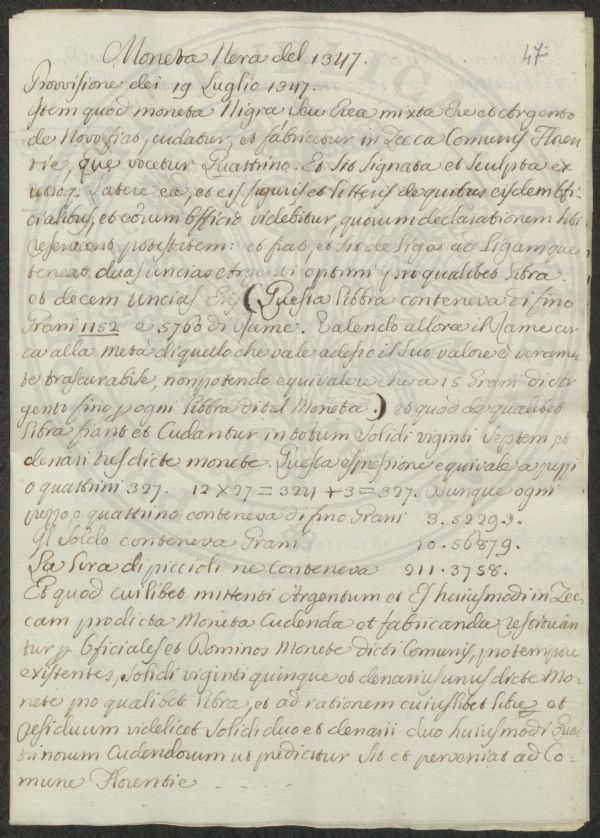 47
Moneta Nera del 1347.
Provvisione dei 19 Luglio 1347.
Item quod moneta Nigra seu Erea mixta Ere et Argento
de Novo fiat, cudatur, et fabricetur in Zecca Comunis Floren-
tie, que vocetur Quattrino. Et sit signata et sculpta ex
utroq. latere ea, et eis figuris et litteris de quibus eisdem Offi-
cialibus, et eorum Officio videbitur, quorum declarationem sibi
reservent potestatem: et fiat, et sit de liga ad ligam que
teneat duas uncias Argenti optimi pro qualibet libra
et decem Uncias Eris (Questa libbra conteneva di fino
Grani 1152 e 5760 di Rame. Valendo allora il Rame cir-
ca alla metà di quello che vale adesso il suo valore è veramen-
te trascurabile, non potendo equivalere che a 15 Grani di Ar-
gento fino p ogni libbra di tal Moneta.) et quod de qualibet
libra fiant et Cudantur in totum solidi viginti septem, et
denari tres dicte monete. Questa espressione equivale a pezzi
o quattrini 327. 12 X 27 = 324 + 3 = 327. Dunque ogni
pezzo, o quattrino conteneva di fino Grani 3.52293.
Il Soldo conteneva Grani 10.56879.
La Lira di piccioli ne Conteneva 211.3758.
Et quod cuilibet mittenti Argentum et Es huiusmodi in Zec-
cam pro dicta Moneta Cudenda et fabricanda restituan-
tur p Officiales et Dominos Monete dicti Comunis, pro tempore
existentes, solidi viginti quinque et denarius unus dicte Mo-
nete pro qualibet libra, et ad rationem cuiuslibet libre et
residuum videlicet solidi duo et denarii duo huiusmodi Quat-
trinorum Cudendorum ut predicitur sit et perveniat ad Co-
mune Florentie